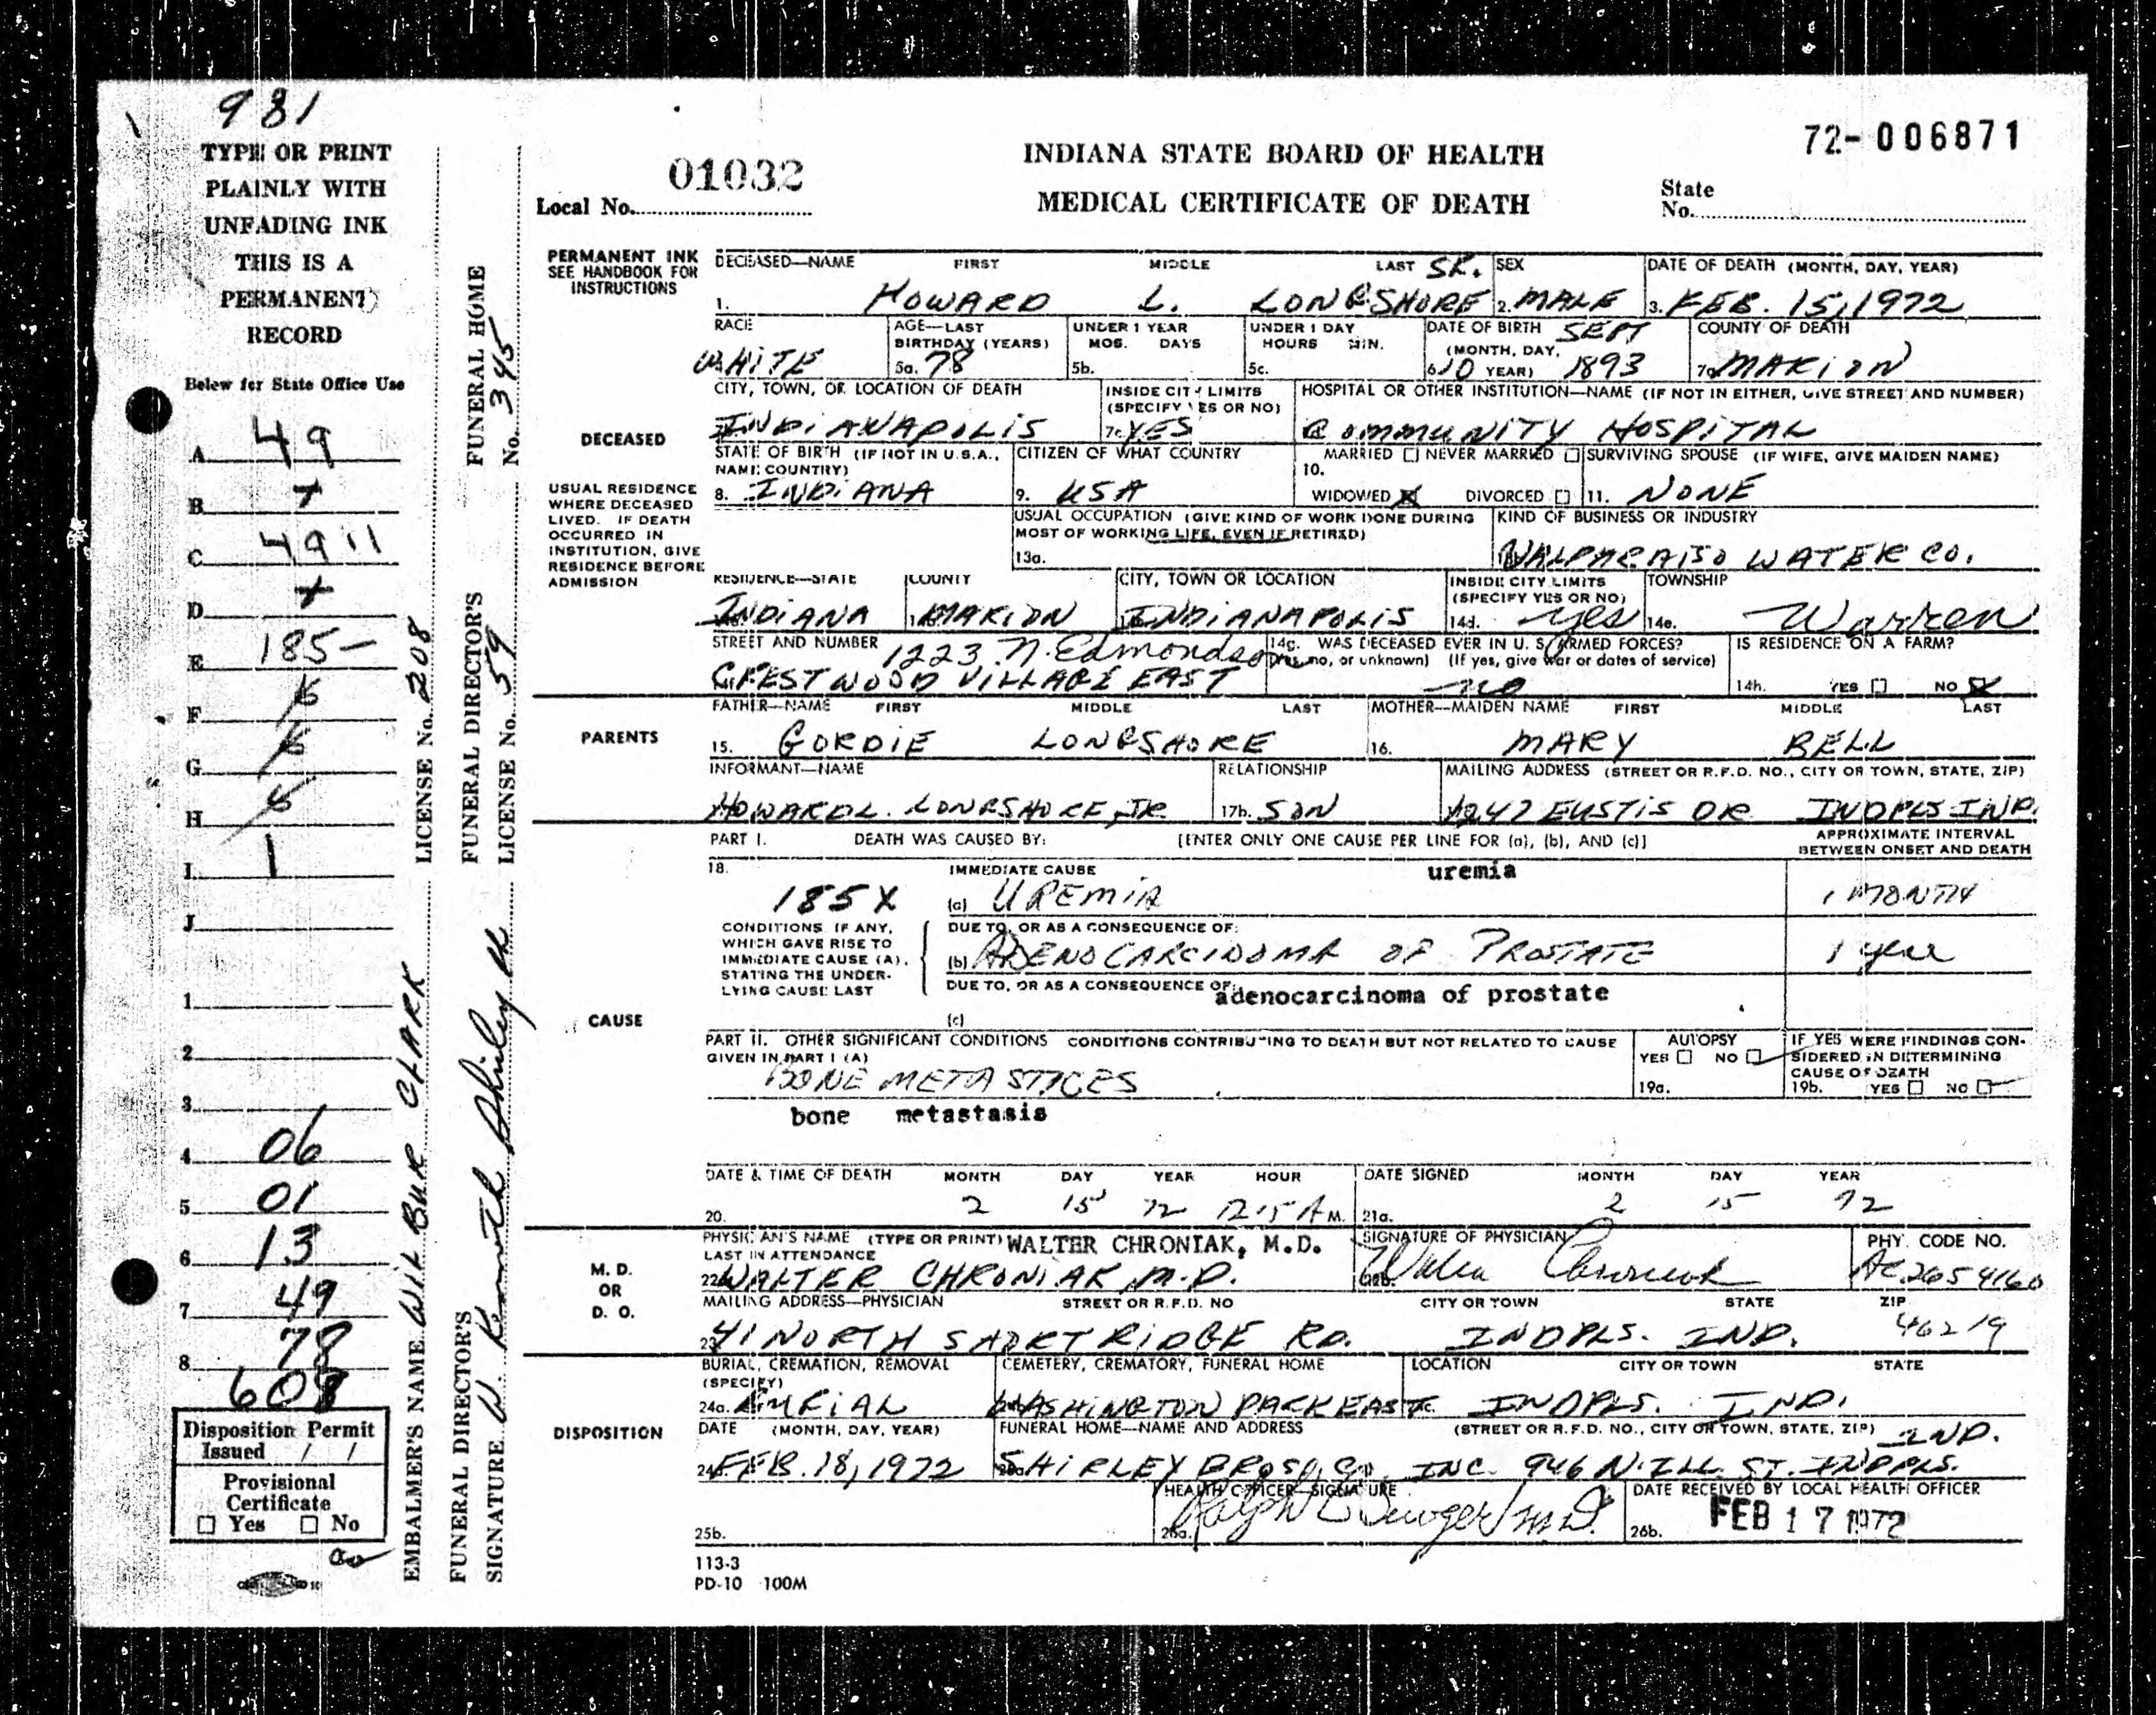 981
TYPE OR PRINT
PLAINLY WITH
UNFADING INK
THIS IS A
PERMANENT
RECORD
Below for State Office Use
A. 49
B. +
C. 4911
D. +
E. 185-
F.
G.
H.
I. 1
J.
1.
2.
3.
4. 06
5. 01
6. 13
7. 49
8. 78
608
Disposition Permit
Issued / /
Provisional
Certificate
☐ Yes ☐ No
EMBALMER'S NAME WILBUR CLARK LICENSE No. 208
FUNERAL DIRECTOR'S SIGNATURE W. Kenneth Shirley
FUNERAL DIRECTOR'S LICENSE No. 59
FUNERAL HOME No. 345
Local No. 01032
INDIANA STATE BOARD OF HEALTH
MEDICAL CERTIFICATE OF DEATH
72-006871
State
No.
PERMANENT INK
SEE HANDBOOK FOR
INSTRUCTIONS
DECEASED
USUAL RESIDENCE
WHERE DECEASED
LIVED. IF DEATH
OCCURRED IN
INSTITUTION, GIVE
RESIDENCE BEFORE
ADMISSION
DECEASED—NAME FIRST MIDDLE LAST SR. SEX DATE OF DEATH (MONTH, DAY, YEAR)
1. HOWARD L. LONGSHORE 2. MALE 3. FEB. 15, 1972
RACE AGE—LAST BIRTHDAY (YEARS) UNDER 1 YEAR MOS. DAYS UNDER 1 DAY HOURS MIN. DATE OF BIRTH (MONTH, DAY, YEAR) COUNTY OF DEATH
WHITE 5a. 78 5b. 5c. 6. SEPT 10 1893 7a. MARION
CITY, TOWN, OR LOCATION OF DEATH INSIDE CITY LIMITS (SPECIFY YES OR NO) HOSPITAL OR OTHER INSTITUTION—NAME (IF NOT IN EITHER, GIVE STREET AND NUMBER)
INDIANAPOLIS 7c. YES COMMUNITY HOSPITAL
STATE OF BIRTH (IF NOT IN U.S.A., NAME COUNTRY) CITIZEN OF WHAT COUNTRY MARRIED ☐ NEVER MARRIED ☐ SURVIVING SPOUSE (IF WIFE, GIVE MAIDEN NAME)
8. INDIANA 9. USA 10. WIDOWED ☒ DIVORCED ☐ 11. NONE
USUAL OCCUPATION (GIVE KIND OF WORK DONE DURING MOST OF WORKING LIFE, EVEN IF RETIRED) KIND OF BUSINESS OR INDUSTRY
13a. VALPARAISO WATER CO.
RESIDENCE—STATE COUNTY CITY, TOWN OR LOCATION INSIDE CITY LIMITS (SPECIFY YES OR NO) TOWNSHIP
INDIANA MARION INDIANAPOLIS 14d. yes 14e. Warren
STREET AND NUMBER 14g. WAS DECEASED EVER IN U. S. ARMED FORCES? IS RESIDENCE ON A FARM?
1223 N. Edmondson (Yes, no, or unknown) (If yes, give war or dates of service)
CRESTWOOD VILLAGE EAST no 14h. YES ☐ NO ☒
PARENTS
FATHER—NAME FIRST MIDDLE LAST MOTHER—MAIDEN NAME FIRST MIDDLE LAST
15. GORDIE LONGSHORE 16. MARY BELL
INFORMANT—NAME RELATIONSHIP MAILING ADDRESS (STREET OR R.F.D. NO., CITY OR TOWN, STATE, ZIP)
HOWARD L. LONGSHORE, JR. 17b. SON 1247 EUSTIS DR INDPLS IND.
CAUSE
PART I. DEATH WAS CAUSED BY: [ENTER ONLY ONE CAUSE PER LINE FOR (a), (b), AND (c)] APPROXIMATE INTERVAL BETWEEN ONSET AND DEATH
18. IMMEDIATE CAUSE uremia
185X (a) UREMIA 1 MONTH
CONDITIONS IF ANY,
WHICH GAVE RISE TO
IMMEDIATE CAUSE (A),
STATING THE UNDER-
LYING CAUSE LAST
DUE TO, OR AS A CONSEQUENCE OF:
(b) ADENOCARCINOMA OF PROSTATE 1 year
DUE TO, OR AS A CONSEQUENCE OF: adenocarcinoma of prostate
(c)
PART II. OTHER SIGNIFICANT CONDITIONS CONDITIONS CONTRIBUTING TO DEATH BUT NOT RELATED TO CAUSE GIVEN IN PART I (A)
BONE METASTICES
bone metastasis
AUTOPSY YES ☐ NO ☐ 19a.
IF YES WERE FINDINGS CONSIDERED IN DETERMINING CAUSE OF DEATH 19b. YES ☐ NO ☐
DATE & TIME OF DEATH MONTH DAY YEAR HOUR DATE SIGNED MONTH DAY YEAR
20. 2 15 72 12:15 A M. 21a. 2 15 72
M. D.
OR
D. O.
PHYSICIAN'S NAME (TYPE OR PRINT) WALTER CHRONIAK, M.D. SIGNATURE OF PHYSICIAN PHY. CODE NO.
LAST IN ATTENDANCE
22a. WALTER CHRONIAK M.D. 22b. Walter Chroniak AC2654160
MAILING ADDRESS—PHYSICIAN STREET OR R.F.D. NO CITY OR TOWN STATE ZIP
23. 41 NORTH SHORTRIDGE RD. INDPLS. IND. 46219
DISPOSITION
BURIAL, CREMATION, REMOVAL (SPECIFY) CEMETERY, CREMATORY, FUNERAL HOME LOCATION CITY OR TOWN STATE
24a. BURIAL WASHINGTON PARK EAST INDPLS. IND.
DATE (MONTH, DAY, YEAR) FUNERAL HOME—NAME AND ADDRESS (STREET OR R.F.D. NO., CITY OR TOWN, STATE, ZIP)
FEB. 18, 1972 SHIRLEY BROS. CO. INC. 946 N. ILL. ST. INDPLS. IND.
HEALTH OFFICER—SIGNATURE DATE RECEIVED BY LOCAL HEALTH OFFICER
25b. 26a. 26b. FEB 17 1972
113-3
PD-10 100M